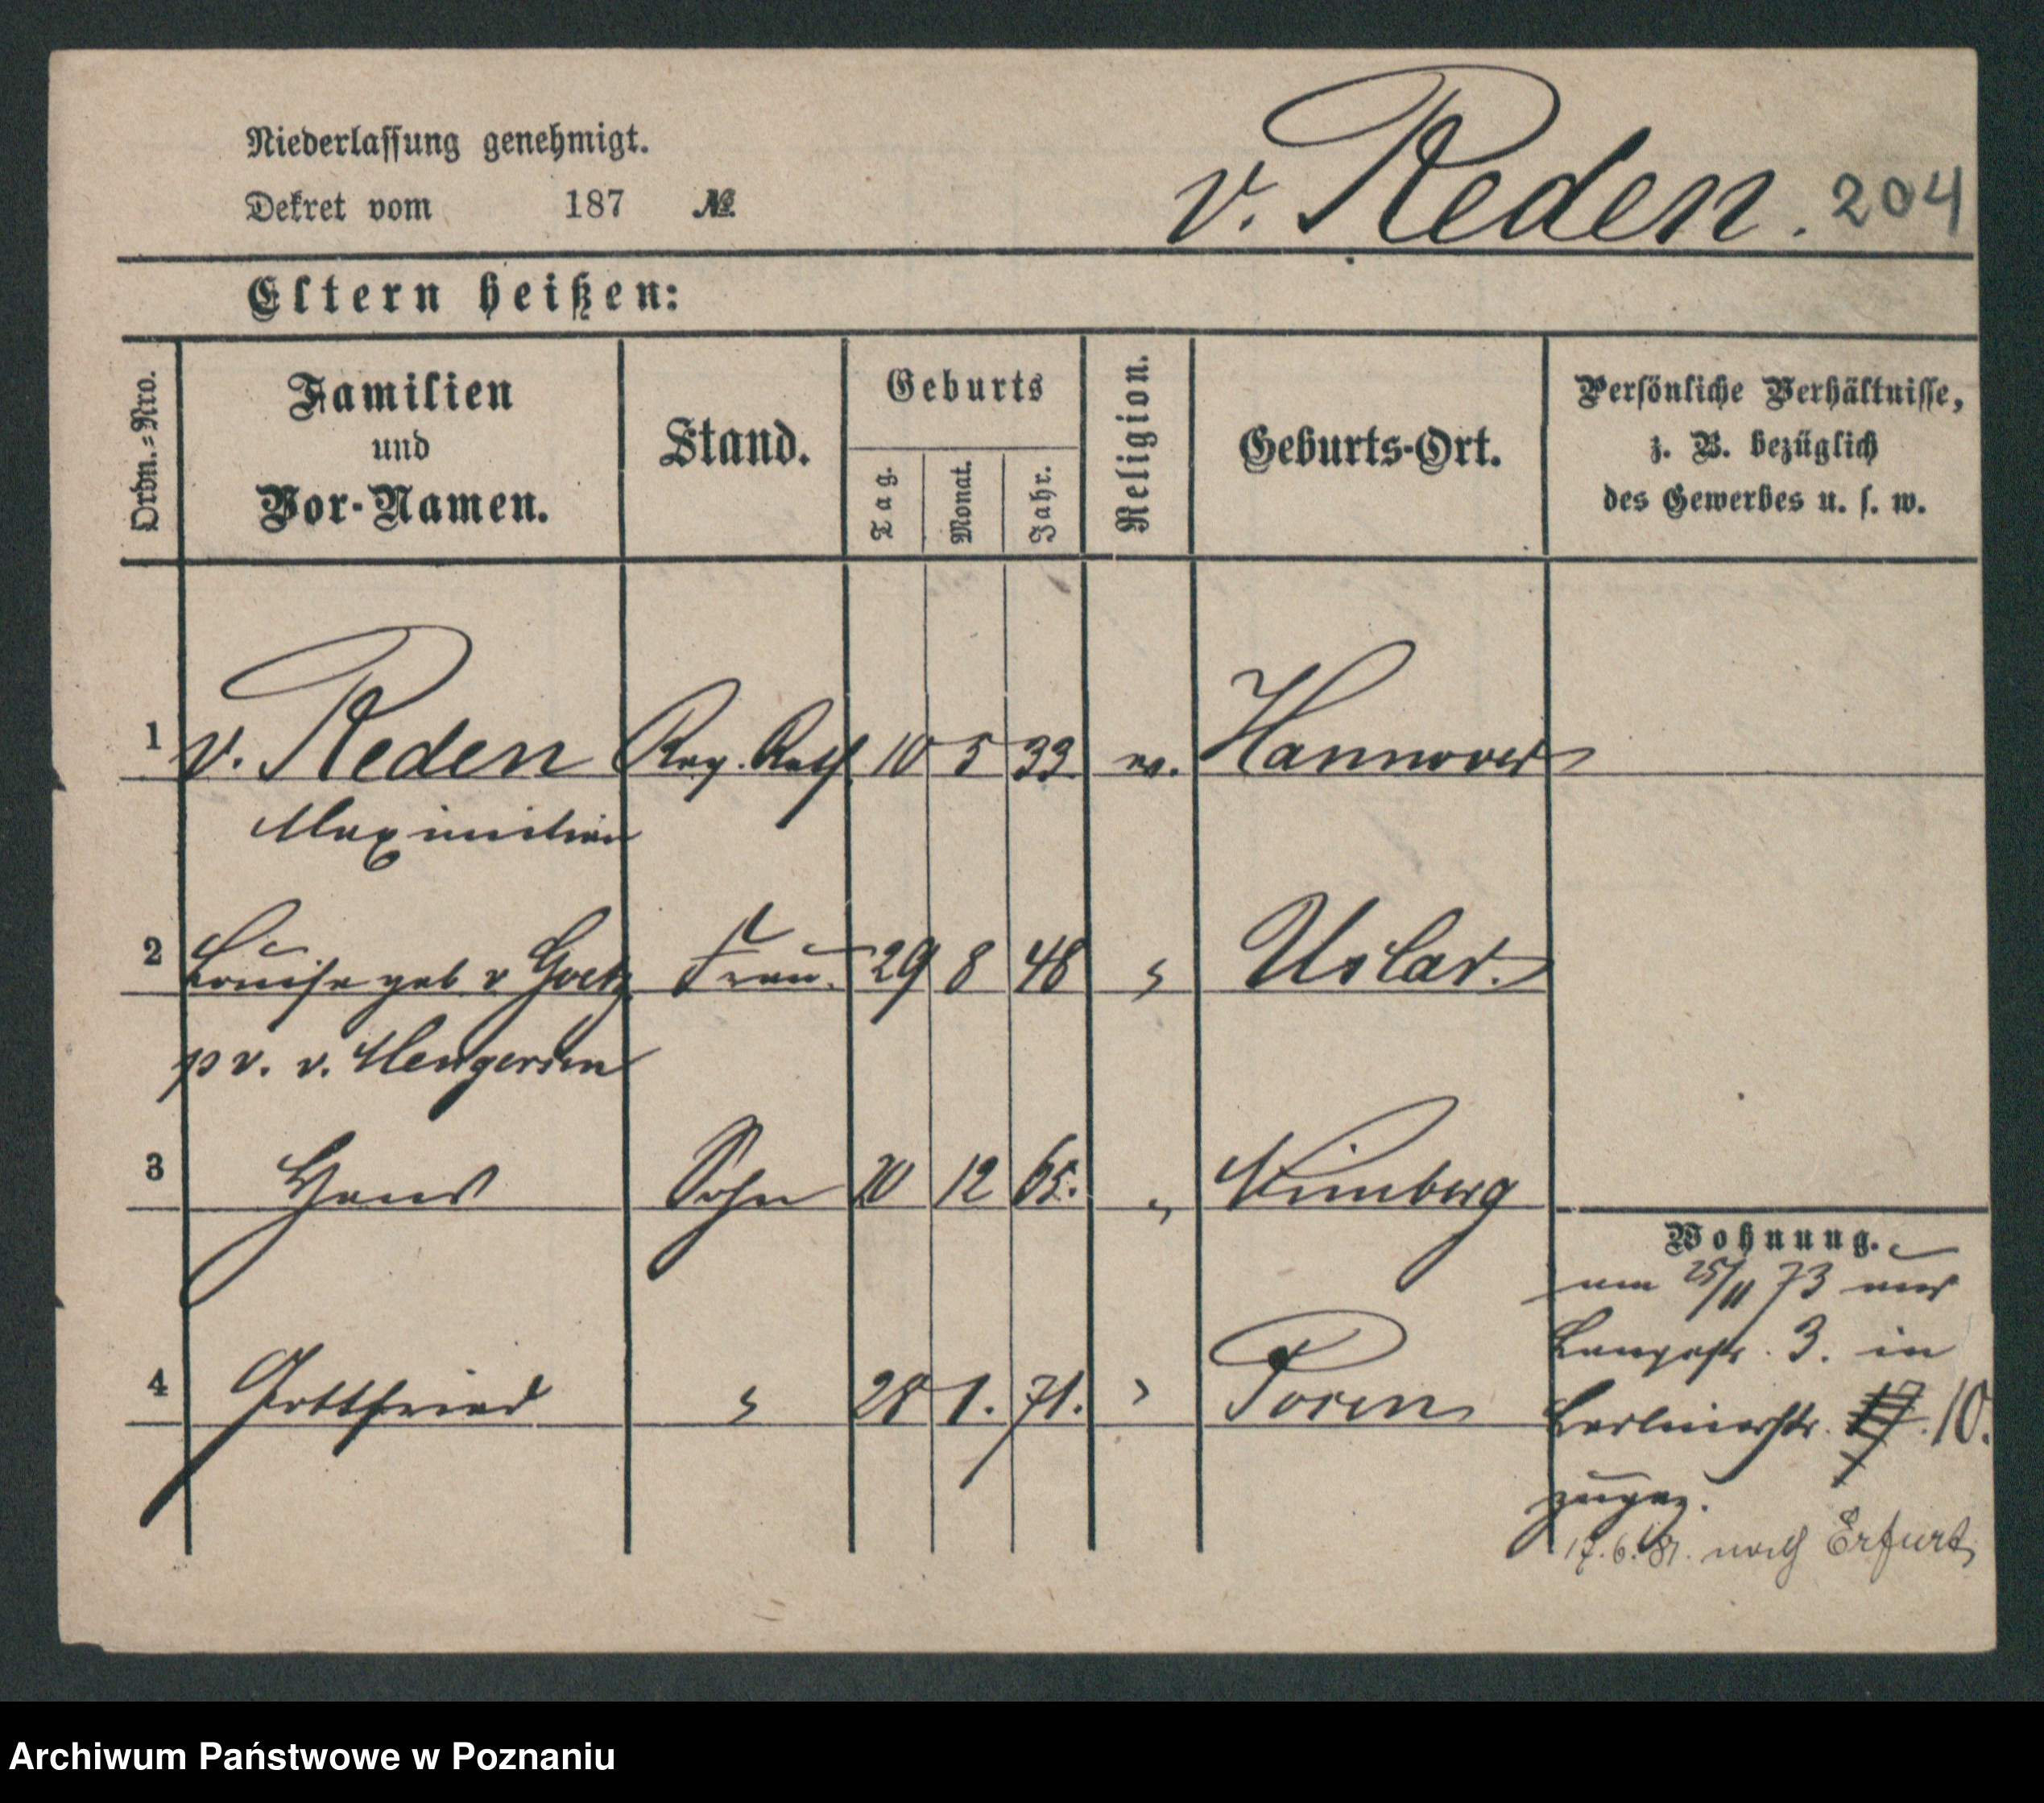 Niederlassung genehmigt.
Dekret vom 187 №
v. Reden. 204
Eltern heißen:
Ordn.=Nro. Familien und Vor-Namen. Stand. Geburts Tag. Monat. Jahr. Religion. Geburts-Ort. Persönliche Verhältnisse, z. B. bezüglich des Gewerbes u. s. w.
1 v. Reden Reg. Rath 10 5 33. ev. Hannover
Maximilian
2 Louise geb v Goetz Frau. 29 8 48 " Uslar.
v. v. Mengersen
3 Hans Sohn 10 12 65. "
4 Gottfried " 28 1. 71. " Posen
Wohnung.
am 25/11 73 aus
Langestr. 3. in
Berlinerstr. 17. 10.
zugez.
17.6.81. nach Erfurt
Archiwum Państwowe w Poznaniu